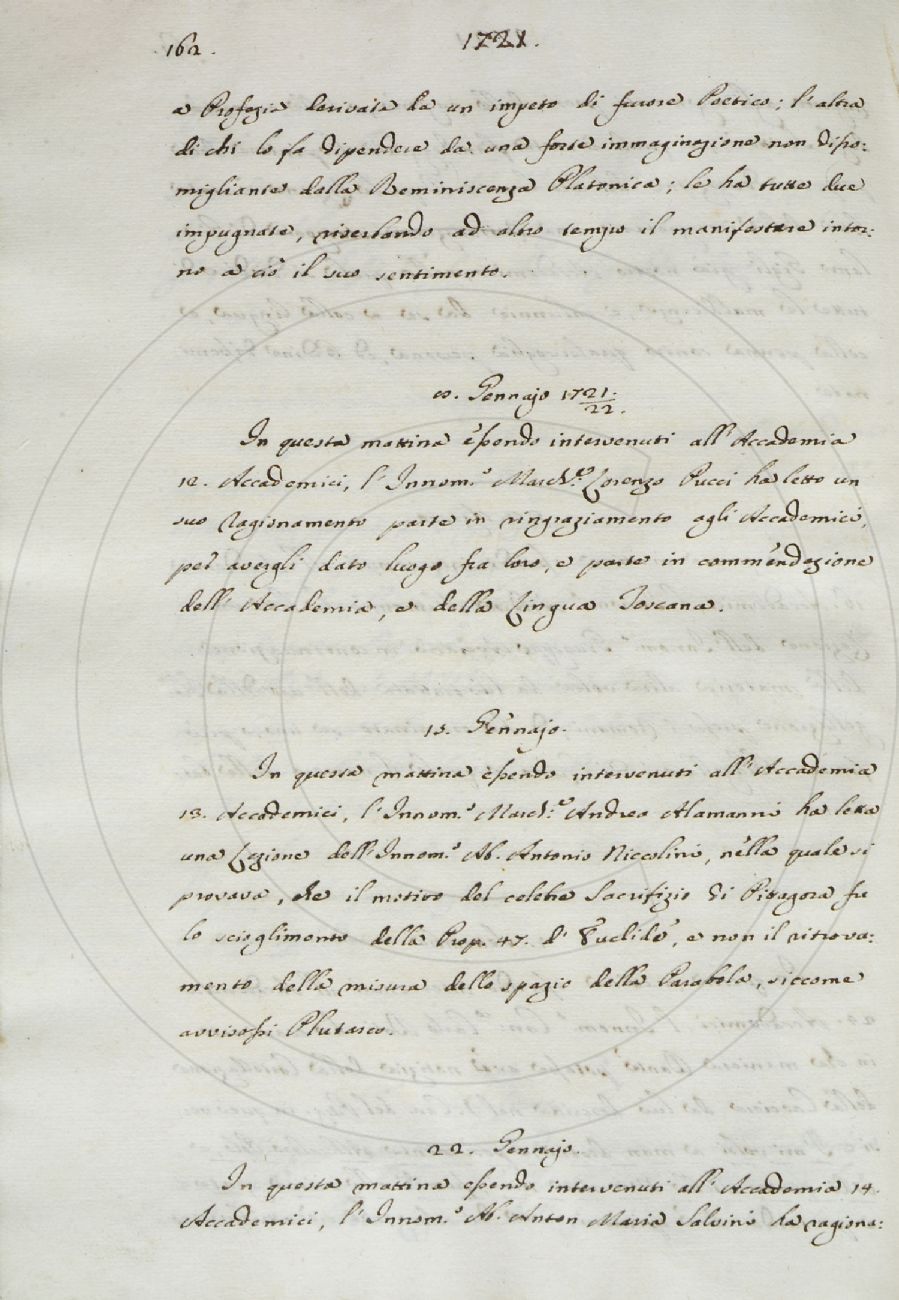 162.
1721.
a Profezia derivata da un impeto di furore Poetico; l'altra
di chi lo fa dipendere da una forte immaginazione non disso:
migliante dalla Reminiscenza Platonica; le ha tutte due
impugnate, riserbando ad altro tempo il manifestare intor:
no a ciò il suo sentimento.
Gennajo 1721/22.
In questa mattina essendo intervenuti all'Accademia
12. Accademici, l'Innom.º March.e Lorenzo Pucci ha letto un
suo ragionamento parte in ringraziamento agli Accademici,
per avergli dato luogo fra loro, e parte in commendazione
dell'Accademia, e della Lingua Toscana.
15. Gennajo.
In questa mattina essendo intervenuti all'Accademia
13. Accademici, l'Innom.º March.e Andrea Alamanni ha letta
una Lezione dell'Innom.º Ab. Antonio Niccolini, nella quale si
provava, che il motivo del celebre Sacrifizio di Pitagora fu
lo scioglimento della Prop. 47. d'Euclide, e non il ritrova:
mento della misura dello spazio della Parabola, siccome
avvisossi Plutarco.
22. Gennajo.
In questa mattina essendo intervenuti all'Accademia 14.
Accademici, l'Innom.º Ab. Anton Maria Salvini ha ragiona: